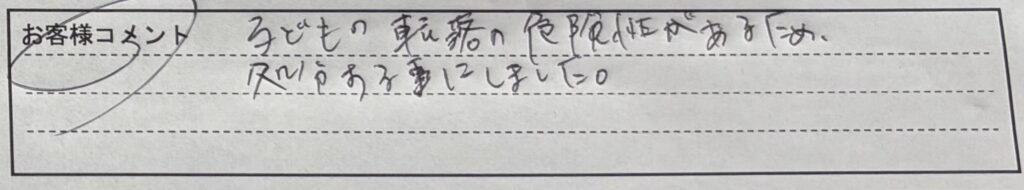 お客様コメント 子どもの転落の危険性があるため、
処分する事にしました。